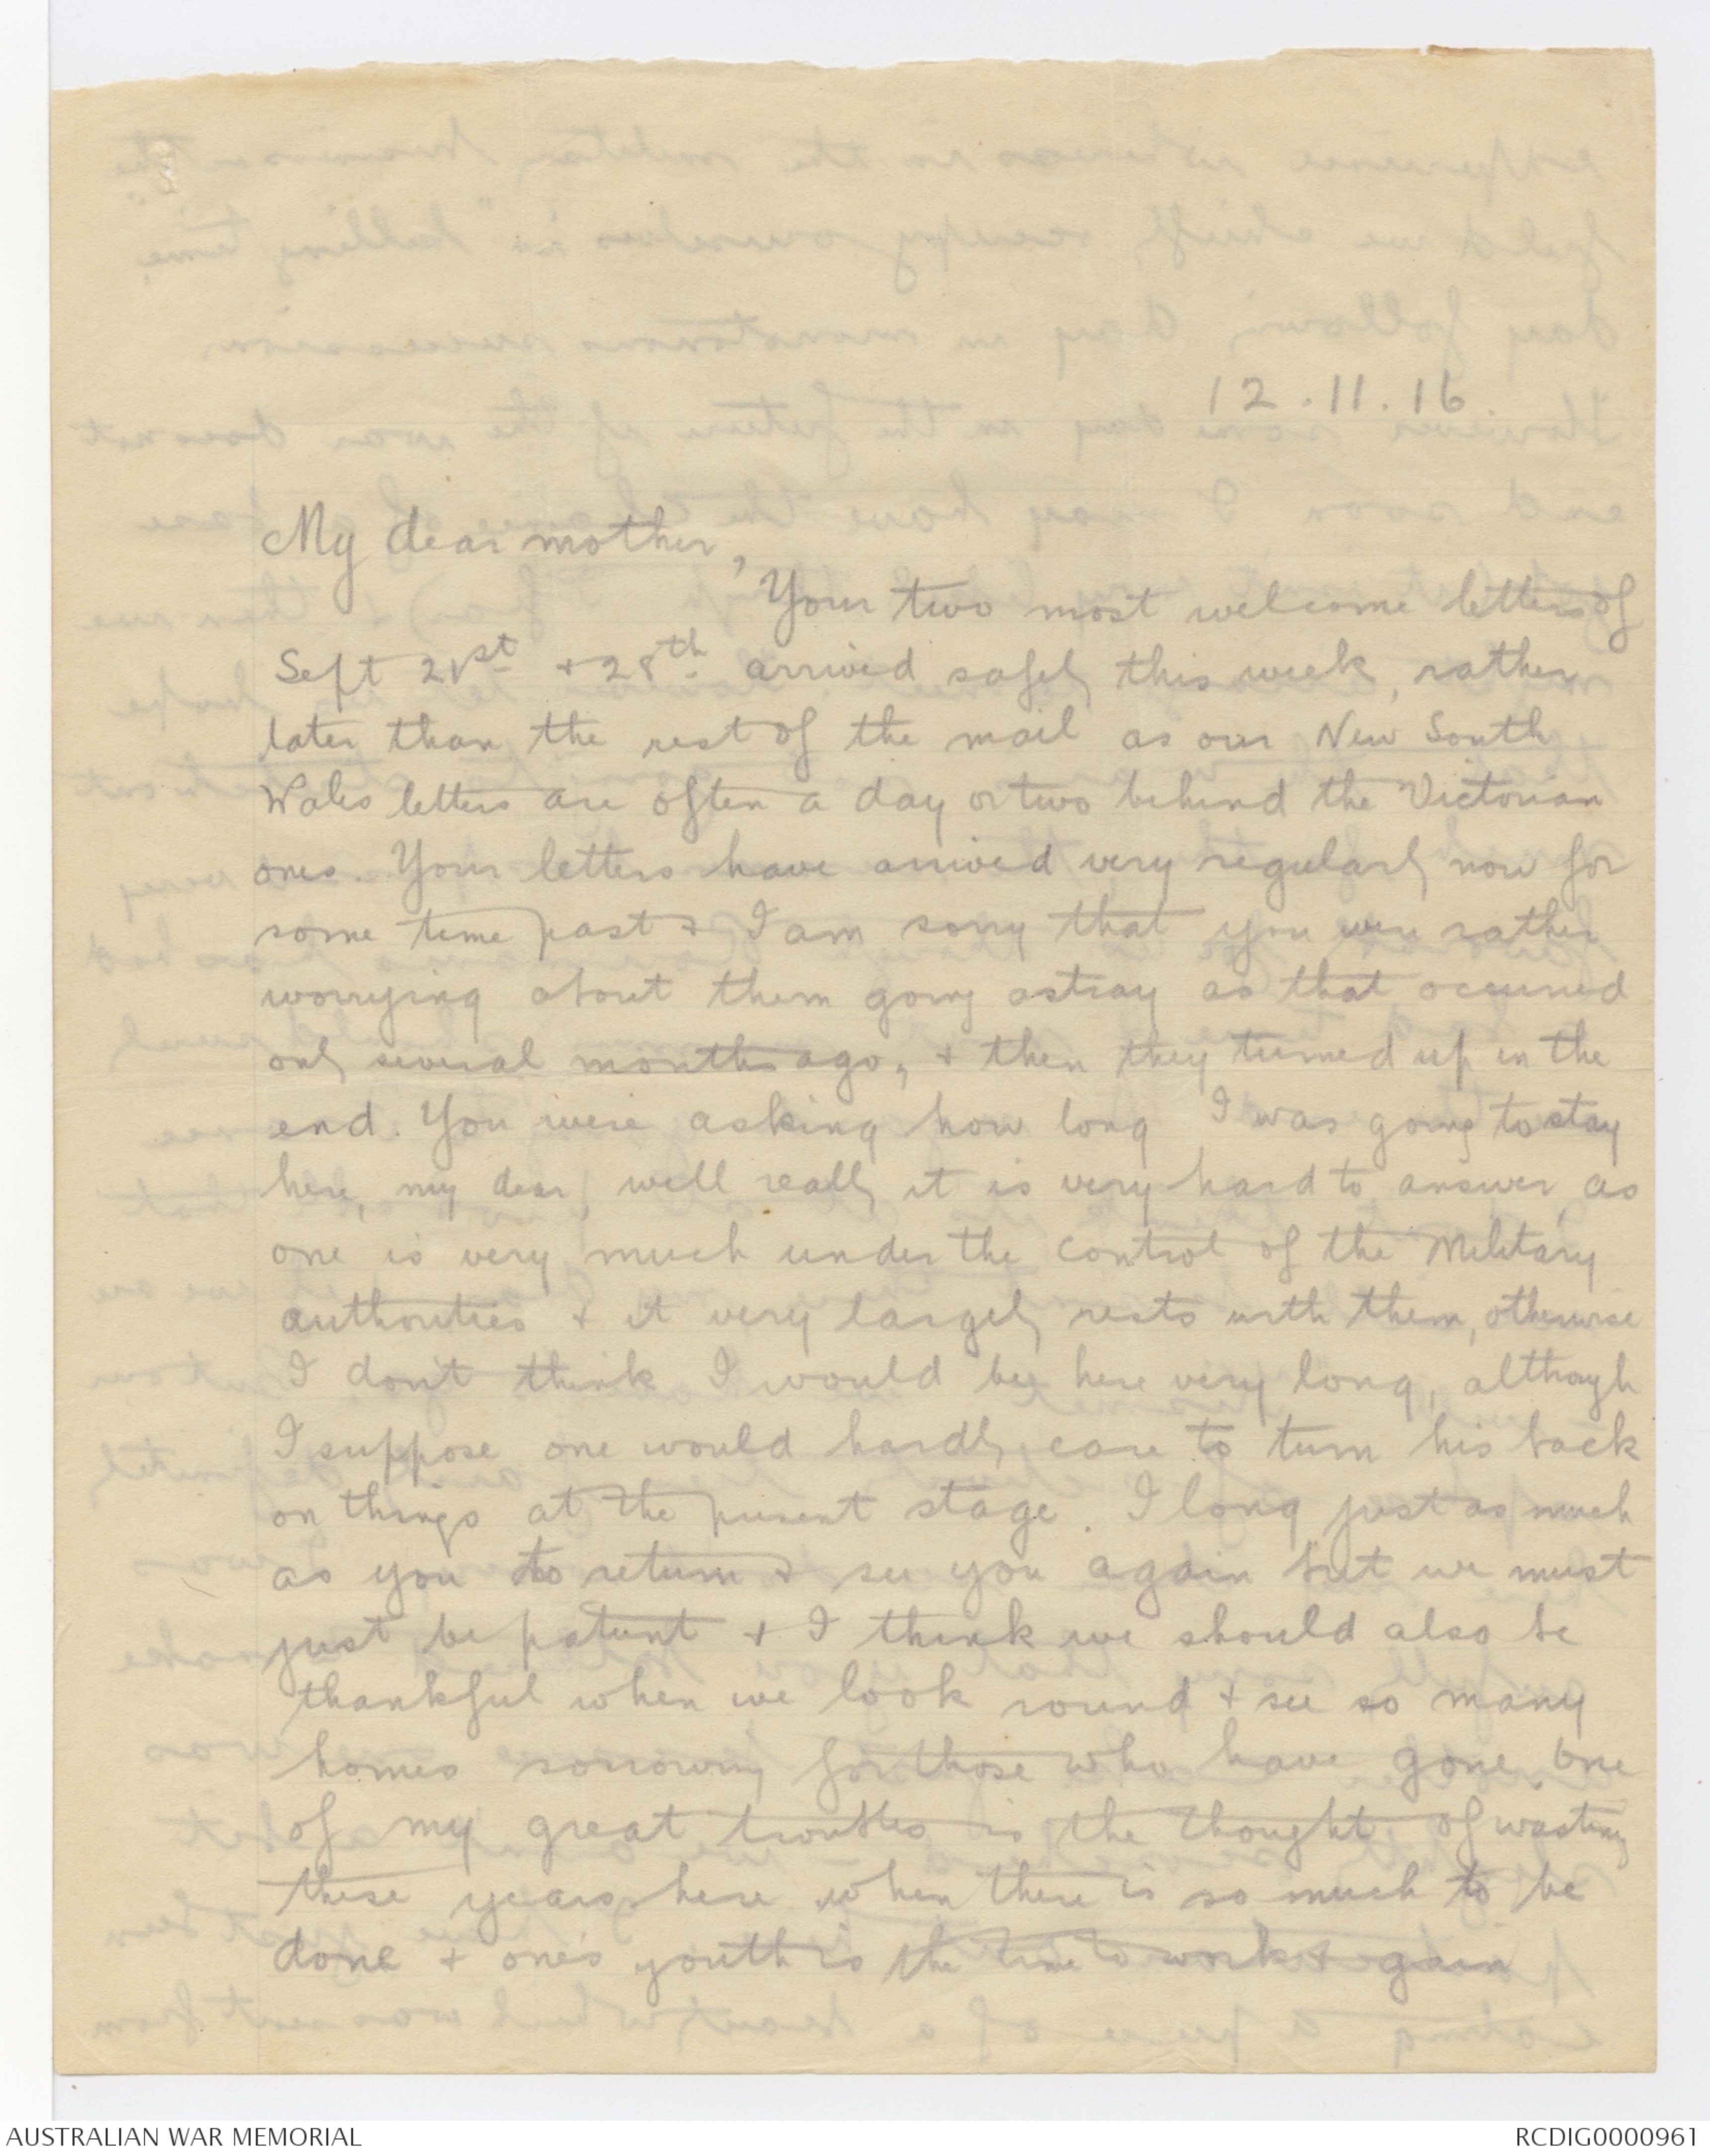 12.11.16
My dear mother,
Your two most welcome letters of
Sept 21st + 28th arrived safely this week, rather
later than the rest of the mail as our New South
Wales letters are often a day or two behind the Victorian
ones. Your letters have arrived very regularly now for
some time past + I am sorry that you were rather
worrying about them going astray as that occurred
only several months ago, + then they turned up in the
end. You were asking how long I was going to stay
here, my dear, well really it is very hard to answer, as
one is very much under the control of the Military
authorities + it very largely rests with them, otherwise
I don't think I would be here very long, although
I suppose one would hardly care to turn his back
on things at the present stage. I long just as much
as you to return + see you again but we must
just be patient + I think we should also be
thankful when we look round + see so many
homes sorrowing for those who have gone. One
of my great troubles is the thought of wasting
these years here when there is so much to be
done + one's youth is the time to work + gain
AUSTRALIAN WAR MEMORIAL
RCDIG0000961